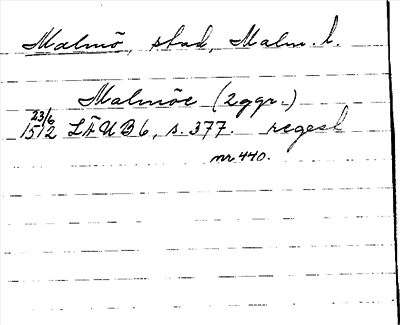 Malmö, stad, Malm. l.
Malmöe (2ggr.)
23/6
1512 LÄUB 6, s. 377. regest
nr 440.